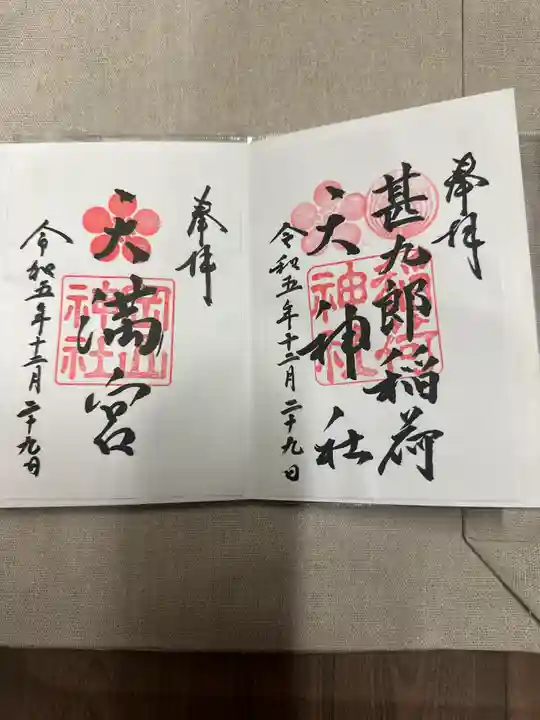 奉拝
甚九郎稲荷
天神社
令和五年十二月二十九日
奉拝
天満宮
岡山
神社
令和五年十二月二十九日